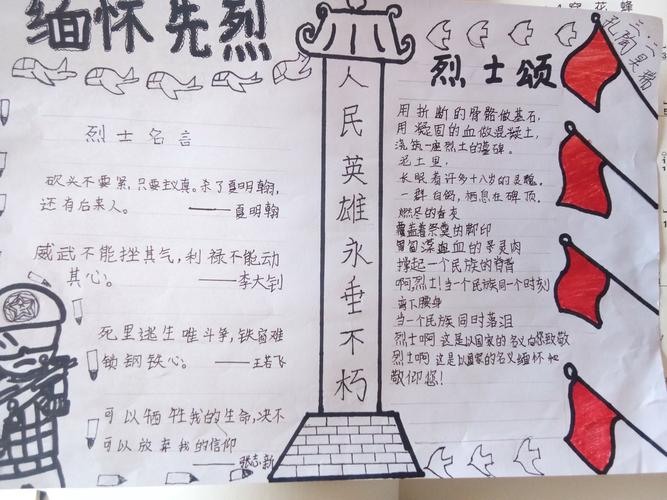 缅怀先烈
烈士名言
砍头不要紧,只要主义真。杀了夏明翰,
还有后来人。——夏明翰
威武不能挫其气,利禄不能动
其心。——李大钊
死里逃生唯斗争,铁窗难
锁钢铁心。——王若飞
可以牺牲我的生命,决不
可以放弃我的信仰
——张志新
人民英雄永垂不朽
三、二
烈士颂
用折断的骨骼做基石,
用凝固的血做混凝土,
浇筑一座烈士的墓碑。
泥土里,
长眠着许多十八岁的灵魂。
一群白鸽,栖息在碑顶,
燃尽的香灰
覆盖着祭奠的脚印
撑起一个民族的脊背
啊,烈士!当一个民族同一个时刻
弯下腰身
当一个民族同时落泪
烈士啊 这是以国家的名义向您致敬
烈士啊 这是以国家的名义缅怀
敬仰您!